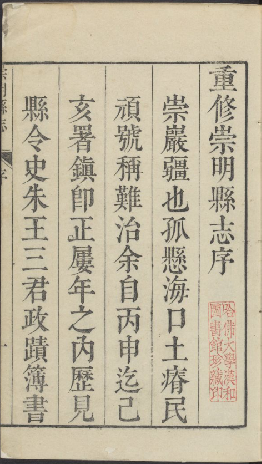 重修崇明縣志序
崇巖疆也孤懸海口土瘠民
頑號稱難治余自丙申迄己
亥署鎮即正屢年之内歷見
縣令史朱王三君政蹟簿書
崇明縣志
序
哈佛大學漢和
圖書館珍藏印